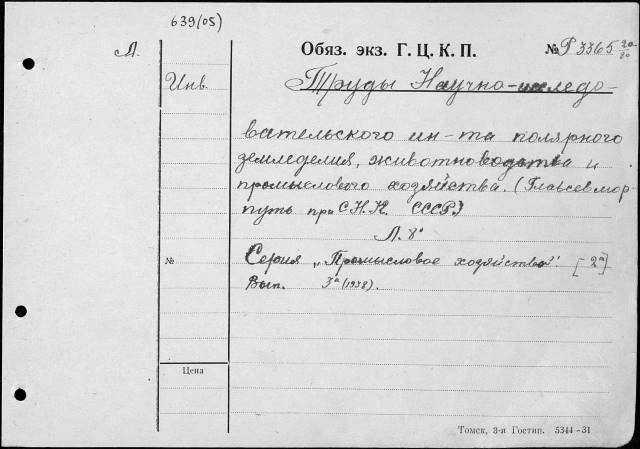 639(05)
Л.
Обяз. экз. Г. Ц. К. П.
№ Р 3365 20/80
Инв.
Труды Научно-исследо-
вательского ин-та полярного
земледелия, животноводства и
промыслового хозяйства. (Главсевмор-
путь при С.Н.К. СССР.)
Л. 8°
№
Серия „Промысловое хозяйство". [2а]
Вып. 3а (1938).
Цена
Томск, 3-я Гостип. 5344-31